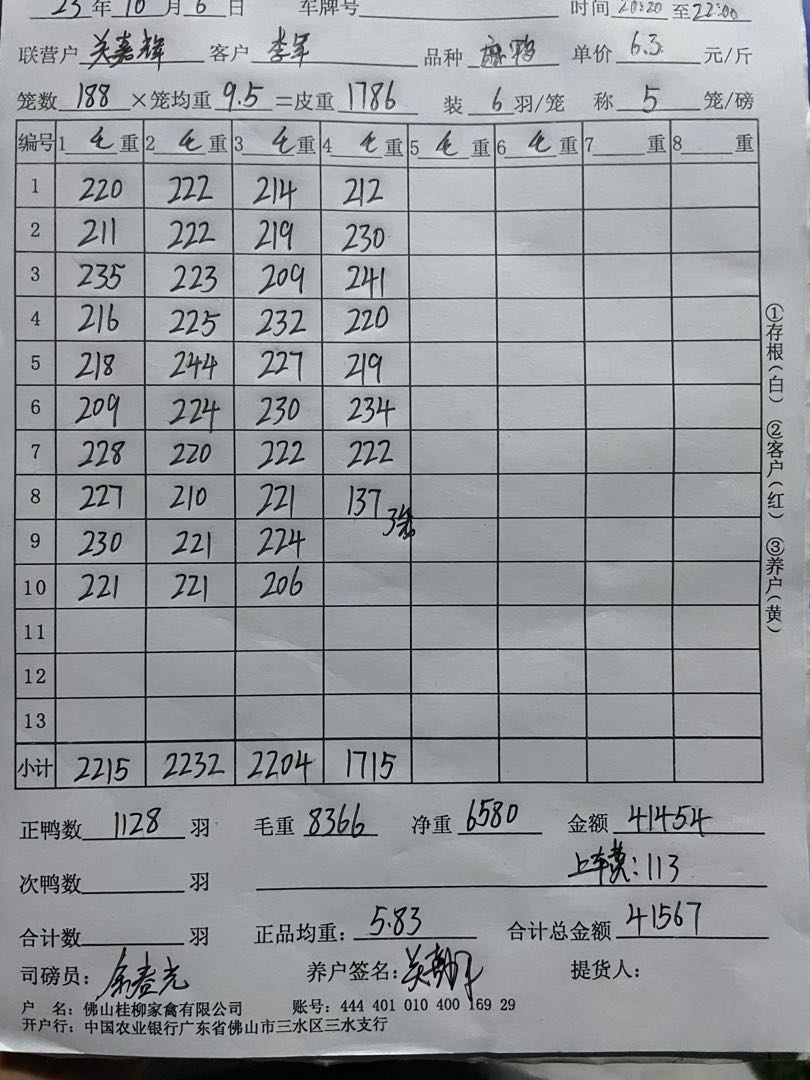 23 年 10 月 6 日 车牌号 时间 20:20 至 22:00
联营户 关嘉辉 客户 李军 品种 麻鸭 单价 6.3 元/斤
笼数 188 ×笼均重 9.5 =皮重 1786 装 6 羽/笼 称 5 笼/磅
编号 1 毛 重 2 毛 重 3 毛 重 4 毛 重 5 毛 重 6 毛 重 7 重 8 重
1 220 222 214 212
2 211 222 219 230
3 235 223 209 241
4 216 225 232 220
5 218 244 227 219
6 209 224 230 234
7 228 220 222 222
8 227 210 221 137 3笼
9 230 221 224
10 221 221 206
11
12
13
小计 2215 2232 2204 1715
①存根(白) ②客户(红) ③养户(黄)
正鸭数 1128 羽 毛重 8366 净重 6580 金额 41454
次鸭数 羽 上车费:113
合计数 羽 正品均重: 5.83 合计总金额 41567
司磅员: 养户签名: 提货人:
户 名: 佛山桂柳家禽有限公司 账号: 444 401 010 400 169 29
开户行: 中国农业银行广东省佛山市三水区三水支行